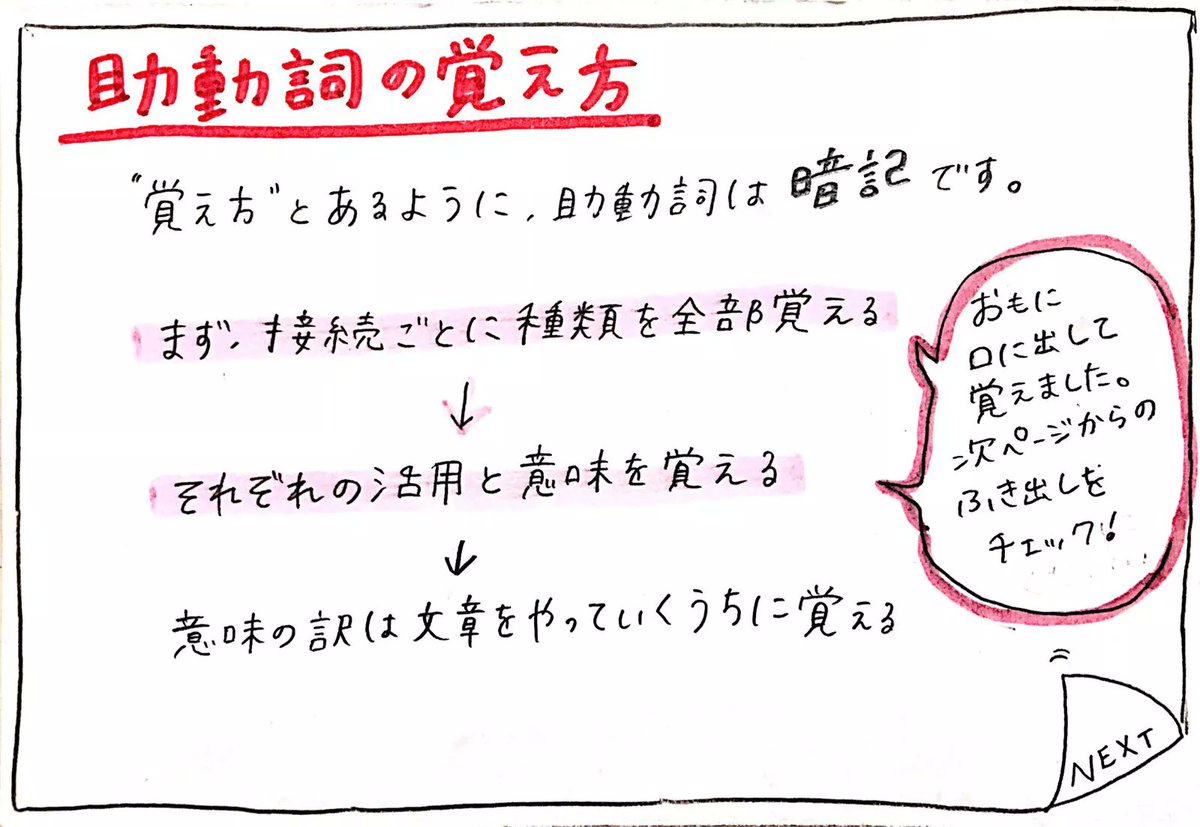 助動詞の覚え方
"覚え方"とあるように、助動詞は暗記です。
まず、接続ごとに種類を全部覚える
↓
それぞれの活用と意味を覚える
↓
意味の訳は文章をやっていくうちに覚える
おもに
口に出して
覚えました。
次ページからの
ふき出しを
チェック!
NEXT